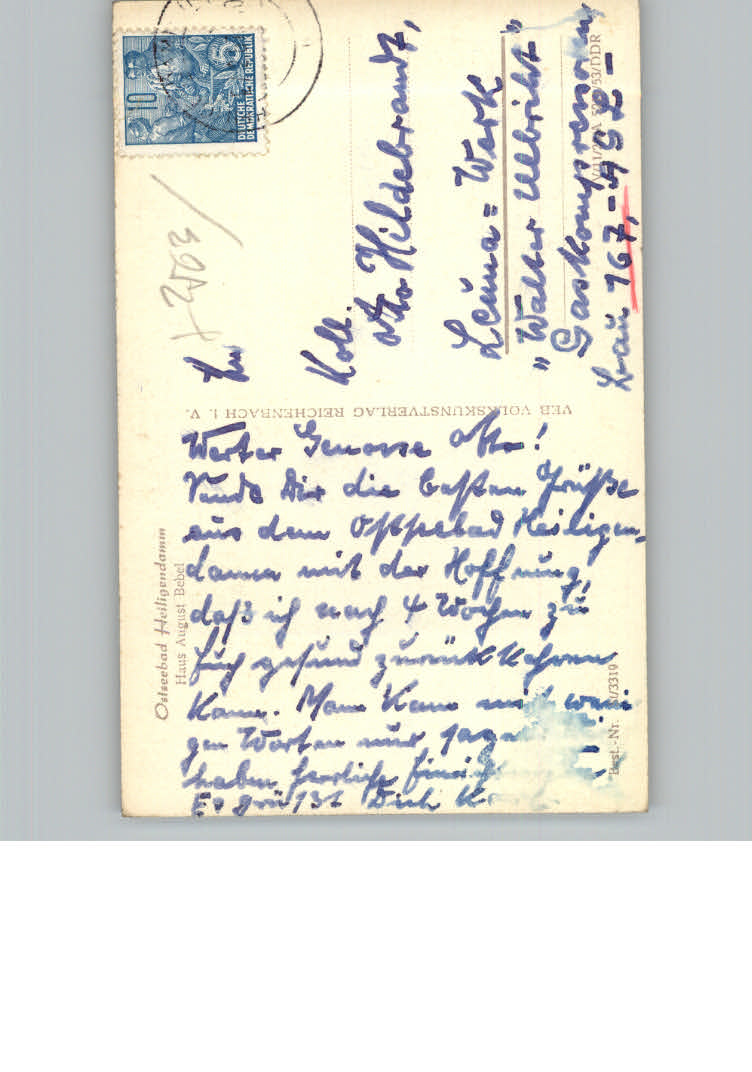 10
DEUTSCHE
DEMOKRATISCHE REPUBLIK
+ 2503
An
Koll.
Otto Hildebrandt,
Leuna = Werk
"Walter Ulbricht"
Gaskompressoren
Bau 167,
VEB VOLKSKUNSTVERLAG REICHENBACH I. V.
Ostseebad Heiligendamm
Haus August Bebel
Werter Genosse Otto!
Sende Dir die besten Grüße
aus dem Ostseebad Heiligen-
damm mit der Hoffnung,
daß ich nach 4 Wochen zu
Euch gesund zurück kehren
kann. Man kann mit weni
gen Worten nur sagen
haben herrliche
Es grüßt Dich
Best.-Nr. /3319